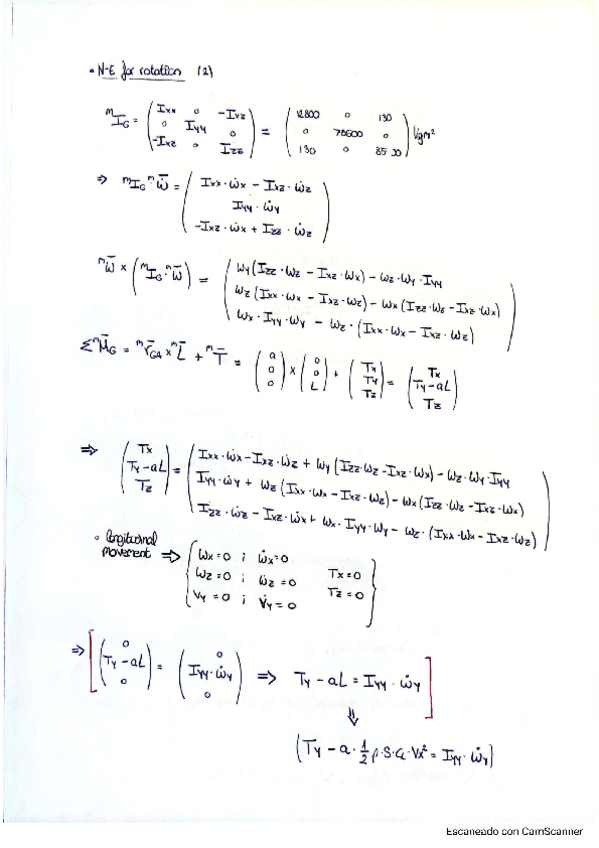 • N-E for rotation (2)
ᵐI_G = ( Ixx 0 -Ixz ; 0 Iyy 0 ; -Ixz 0 Izz ) = ( 12800 0 130 ; 0 0 ; 130 0 ) kgm²
⇒ ᵐI_G · ᵐω̇ = ( Ixx · ω̇x - Ixz · ω̇z ; Iyy · ω̇y ; -Ixz · ω̇x + Izz · ω̇z )
ᵐω̄ × ( ᵐI_G · ᵐω̄ ) = ( ωy (Izz · ωz - Ixz · ωx) - ωz · ωy · Iyy ; ωz (Ixx · ωx - Ixz · ωz) - ωx (Izz · ωz - Ixz · ωx) ; ωx · Iyy · ωy - ωz · (Ixx · ωx - Ixz · ωz) )
Σ ᵐM̄_G = ᵐr̄_GA × ᵐL̄ + ᵐT̄ = ( a ; 0 ; 0 ) × ( 0 ; 0 ; L ) + ( Tx ; Ty ; Tz ) = ( Tx ; Ty - aL ; Tz )
⇒ ( Tx ; Ty - aL ; Tz ) = ( Ixx · ω̇x - Ixz · ω̇z + ωy (Izz · ωz - Ixz · ωx) - ωz · ωy · Iyy ; Iyy · ω̇y + ωz (Ixx · ωx - Ixz · ωz) - ωx (Izz · ωz - Ixz · ωx) ; Izz · ω̇z - Ixz · ω̇x + ωx · Iyy · ωy - ωz · (Ixx · ωx - Ixz · ωz) )
• longitudinal
movement ⇒ { ωx = 0 ; ω̇x = 0
ωz = 0 ; ω̇z = 0 Tx = 0
Vy = 0 ; V̇y = 0 Tz = 0 }
⇒ [ ( 0 ; Ty - aL ; 0 ) = ( 0 ; Iyy · ω̇y ; 0 ) ⇒ Ty - aL = Iyy · ω̇y ]
⇓
( Ty - a · 1/2 ρ · S · CL · Vx² = Iyy · ω̇y )
Escaneado con CamScanner